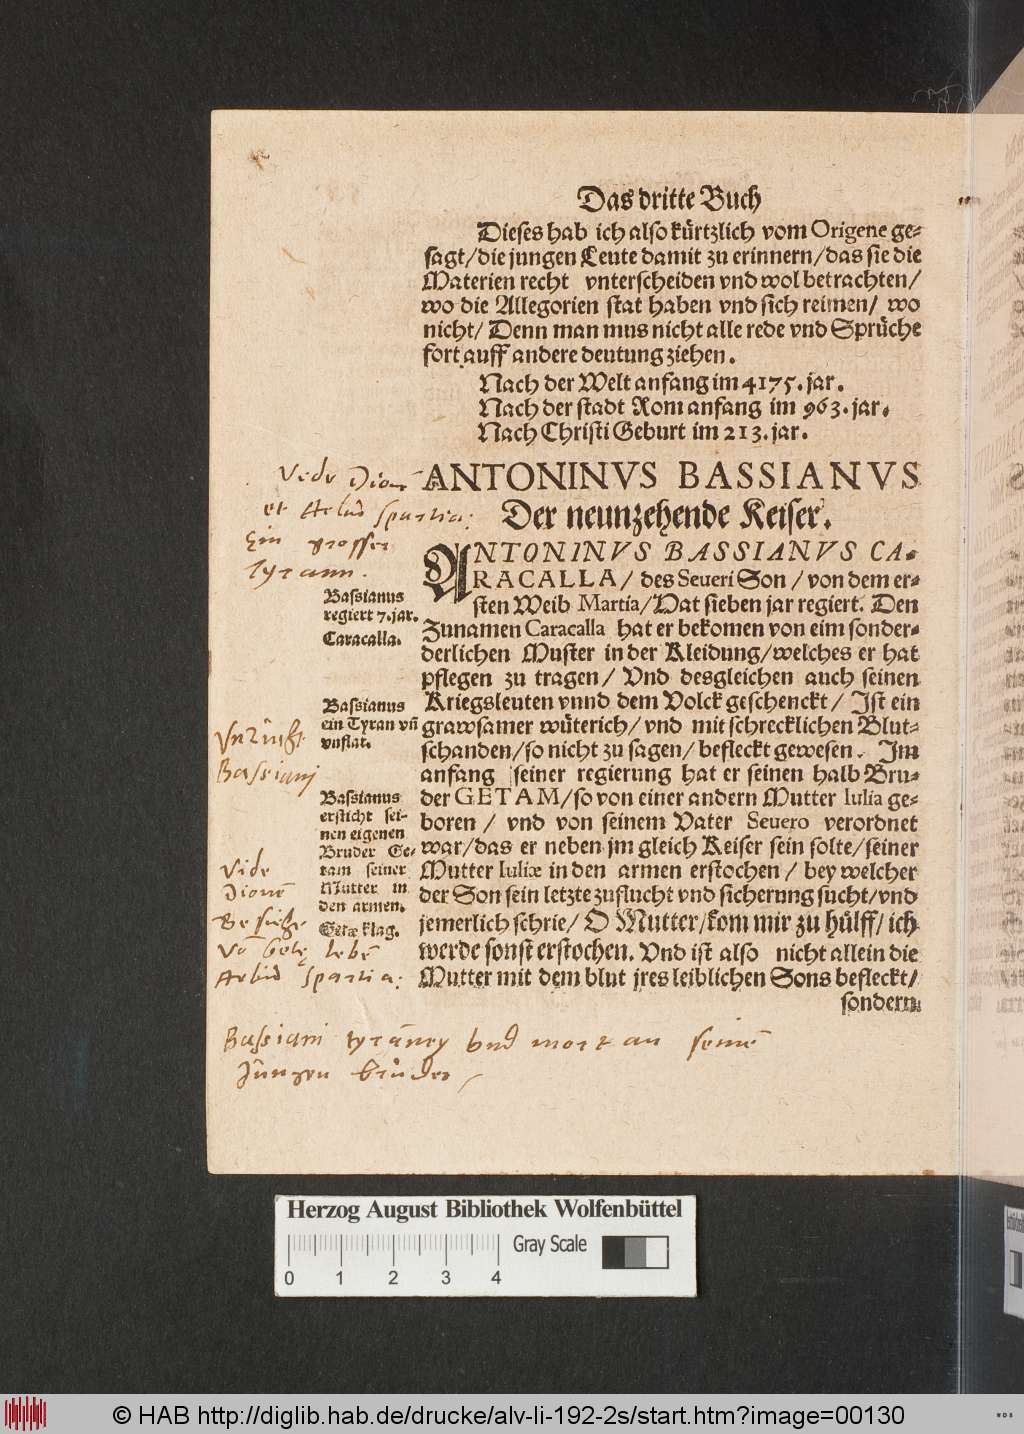 Das dritte Buch
Dieses hab ich also kürtzlich vom Origene ge-
sagt/die jungen Leute damit zu erinnern/das sie die
Materien recht vnterscheiden vnd wol betrachten/
wo die Allegorien stat haben vnd sich reimen/ wo
nicht/ Denn man mus nicht alle rede vnd Sprüche
fort auff andere deutung ziehen.
Nach der Welt anfang im 4175. jar.
Nach der stadt Rom anfang im 963. jar.
Nach Christi Geburt im 213. jar.
ANTONINVS BASSIANVS
Der neunzehende Keiser.
ANTONINVS BASSIANVS CA-
RACALLA/ des Seueri Son/von dem er-
sten Weib Martia/Hat sieben jar regiert. Den
Zunamen Caracalla hat er bekomen von eim sonder-
derlichen Muster in der Kleidung/welches er hat
pflegen zu tragen/ Vnd desgleichen auch seinen
Kriegsleuten vnnd dem Volck geschenckt/ Ist ein
grawsamer wüterich/vnd mit schrecklichen Blut-
schanden/so nicht zu sagen/befleckt gewesen. Im
anfang seiner regierung hat er seinen halb Bru-
der GETAM/so von einer andern Mutter Iulia ge-
boren/ vnd von seinem Vater Seuero verordnet
war/das er neben jm gleich Keiser sein solte/seiner
Mutter Iuliæ in den armen erstochen/ bey welcher
der Son sein letzte zuflucht vnd sicherung sucht/vnd
jemerlich schrie/ O Mutter/kom mir zu hülff/ich
werde sonst erstochen. Vnd ist also nicht allein die
Mutter mit dem blut jres leiblichen Sons befleckt/
sondern
Vide Dionē
et Aeliū Spartia:
Ein grosser
Tyrann.
Bassianus
regiert 7. jar.
Caracalla.
Bassianus
ein Tyran vñ
vnflat.
Vnzucht
Bassianj
Bassianus
ersticht sei-
nen eigenen
Bruder Ge-
tam seiner
Mutter in
den armen.
Getæ klag.
Vide
Dionē
Besiehe
Vō Getę lebē
Aeliū Spartia:
Bassiani tyrāney vnd mort an seinē
Jüngen brůder
Herzog August Bibliothek Wolfenbüttel
Gray Scale
0 1 2 3 4
© HAB http://diglib.hab.de/drucke/alv-li-192-2s/start.htm?image=00130